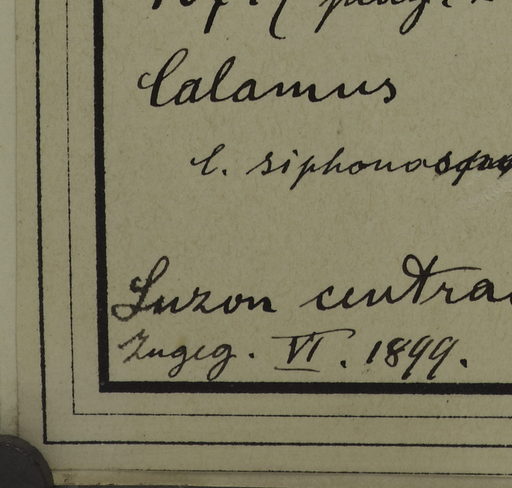 Calamus
C. siphonospa
Luzon centra
Zugeg. VI. 1899.